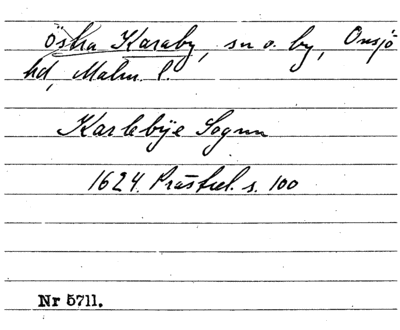 Östra Karaby, sn o. by, Onsjö
hd, Malm. l.
Karlebÿe Sognn
1624. Prästrel. s. 100
Nr 5711.